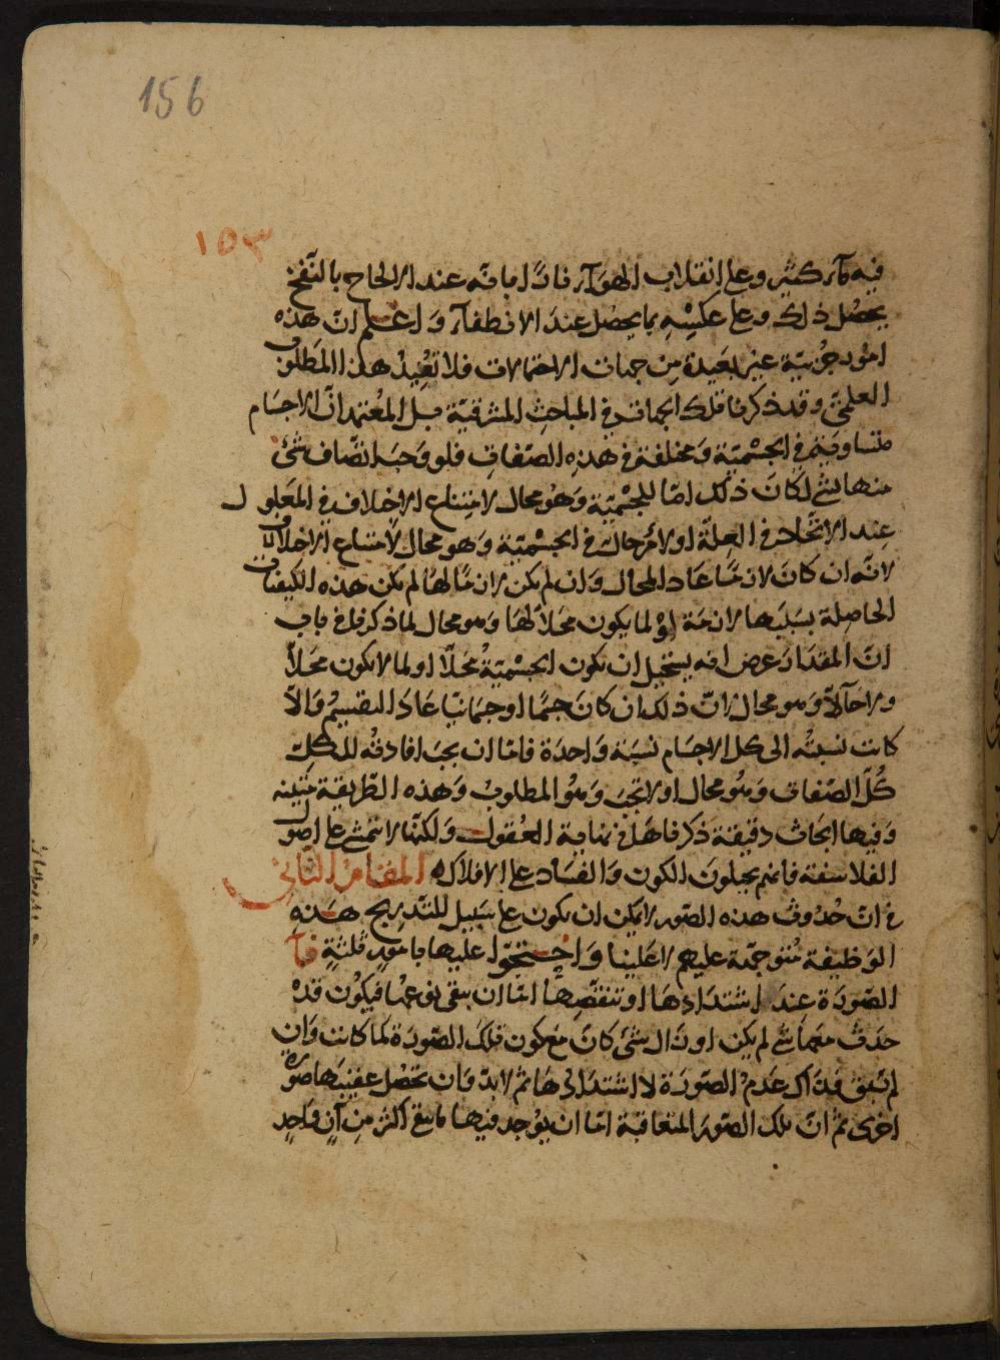 156
١٥٣
فيه ماء كثير وعلى انقلاب الهوآء نارًا بانه عند الالحاح بالنفخ
يحصل ذلك وعلى عكسه بما يحصل عند الانطفآء واعلم ان هذه
امور جزئية غير بعيدة من جهات الاحتمالات فلا تفيد هذا المطلوب
العلمي وقد ذكرنا تلك الجهات في المباحث المشرقية بل المعتمد ان الاجسام
متساوية في الجسمية ومختلفة في هذه الصفات فلو وجب اتصاف شئ
منها لشئ لكان ذلك اما للجسمية وهو محال لامتناع الاختلاف في المعلول
عند الاتحاد في العلة او لامر حال في الجسمية وهو محال لامتناع الاختلاف
لانه ان كان لازمًا عاد المحال وان لم يكن لازمًا لها لم يكن هذه الكيفيات
الحاصلة بسببها لازمة او لما يكون محلا لها وهو محال لما ذكرنا في باب
ان المقدار عرض انه يستحيل ان يكون الجسمية محلا او لما لا يكون محلا
ولا حآلا وهو محال لان ذلك ان كان جسمًا او جسمانيا عاد التقسيم والا
كانت نسبته الى كل الاجسام نسبة واحدة فاما ان يجب افادته للكل
كل الصفات وهو محال او لا تجب وهو المطلوب وهذه الطريقة متينة
وفيها ابحاث دقيقة ذكرناها في نهاية العقول ولكنها لا تتمشى على اصول
الفلاسفة فانهم يجلون الكون والفساد على الافلاك المقام الثاني
في ان حدوث هذه الصور لا يمكن ان يكون على سبيل التدريج هذه
الوظيفة متوجهة عليهم لا علينا واحتجوا عليها بامور ثلثة فآ
الصورة عند اشتدادها او تنقصها اما ان يبقى نوعها فيكون قد
حدث معها شئ لم يكن او زال شئ كان مع كون تلك الصورة كما كانت وان
لم تبق فذاك عدم الصورة لا اشتدادها ثم لا بد وان تحصل عقيبها صورة
اخرى ثم ان تلك الصور المتعاقبة اما ان يوجد فيها ما يبقى اكثر من آن واحد